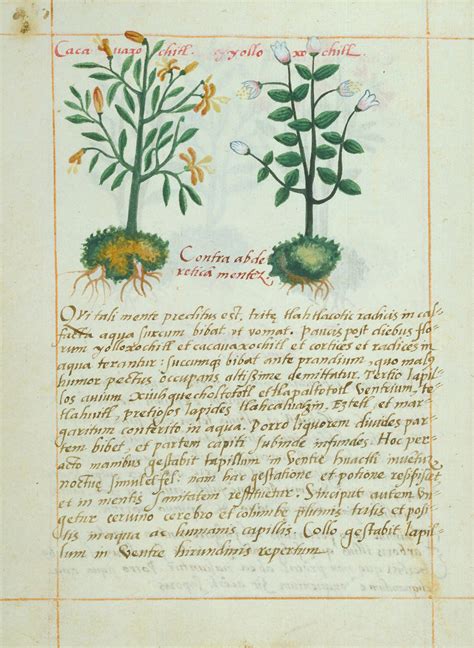 Cacauaxochitl. yolloxochitl.
Contra abde
reticā mentez
Qui tali mente preditus est, trite tlahtlacotic radicis in cal-
facta aqua succum bibat ut vomat. Paucis post diebus flo-
rum yolloxochitl et cacauaxochitl et cortices et radices in
aqua terantur: succumq; bibat ante prandium, quo malus
humor pectus occupans altissime demittatur. Tertio lapil-
los auium xiuhquechol tototl et tlapaltototl ventrium, te-
tlahuitl, pretiosos lapides tlahcalhuatzin, Eztetl, et mar-
garitum conterito in aqua. Porro liquorem diuides par-
tem bibet, et partem capiti subinde infundes. Hoc per-
acto manibus gestabit lapillum in ventre huactli inuentū
noctuę simul et sei: nam hac gestatione et potione resipiscet
et in mentis sanitatem restituetur. Sinciput autem un-
getur ceruino cerebro et columbę plumis tritis et posi-
tis in aqua ac humanis capillis. Collo gestabit lapil-
lum in ventre hirundinis repertum.